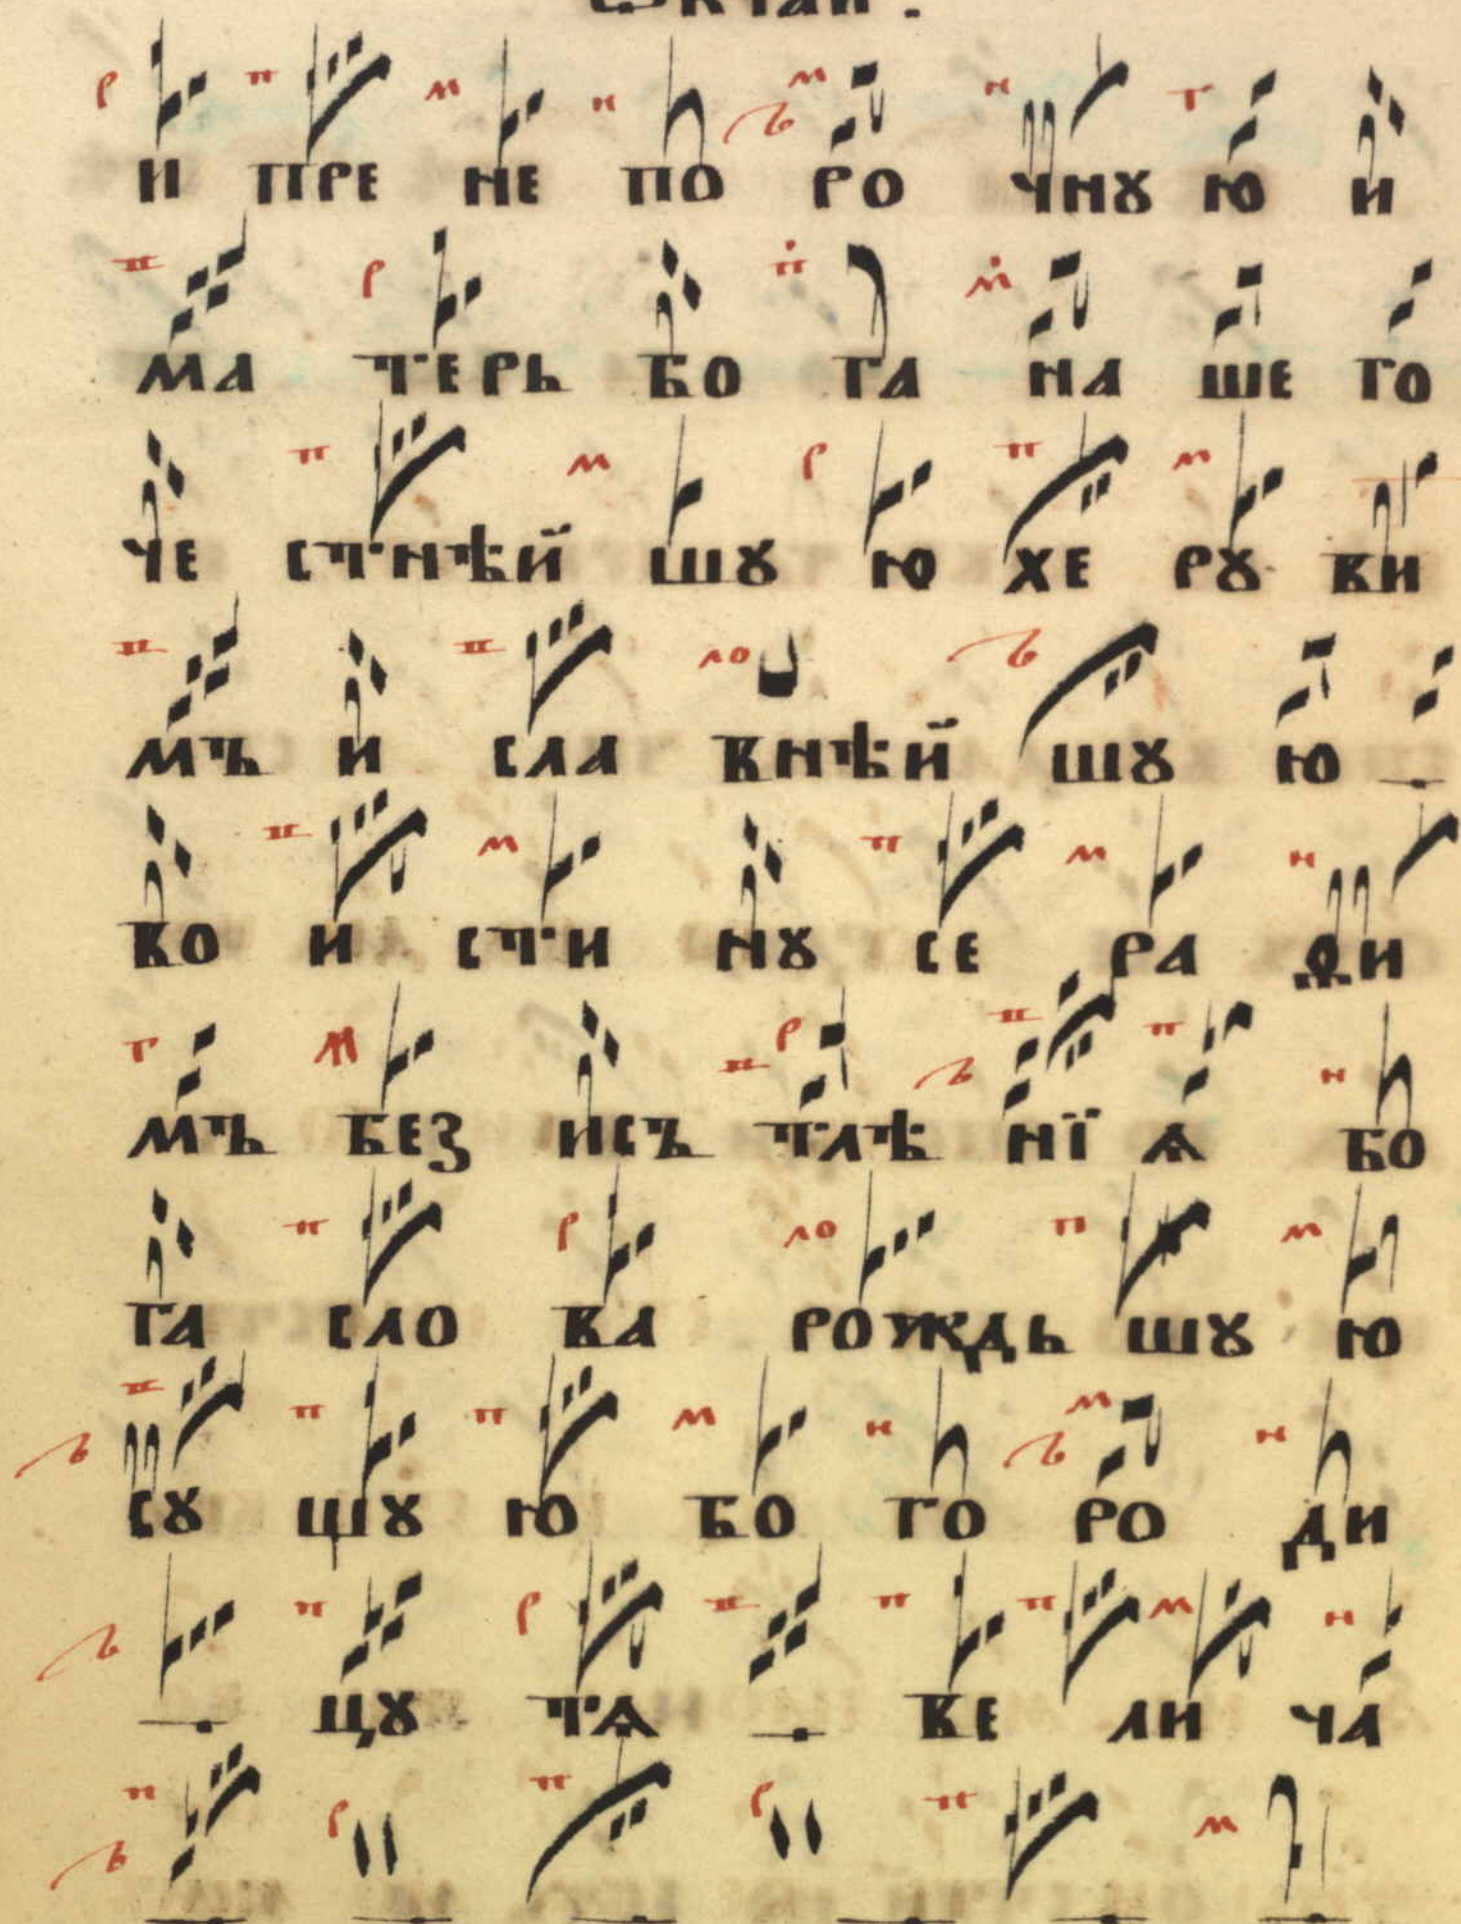 И ПРЕ НЕ ПО РО ЧНꙊ Ю И
МА ТЕРЬ БО ГА НА ШЕ ГО
ЧЕ СТНѢЙ ШꙊ Ю ХЕ РꙊ ВИ
МЪ И СЛА ВНѢЙ ШꙊ Ю
ВО И СТИ НꙊ СЕ РА ФИ
МЪ БЕЗ ИСЪ ТЛѢ НЇ Ѧ БО
ГА СЛО ВА РОЖДЬ ШꙊ Ю
СꙊ ЩꙊ Ю БО ГО РО ДИ
ЦꙊ ТѦ ВЕ ЛИ ЧА